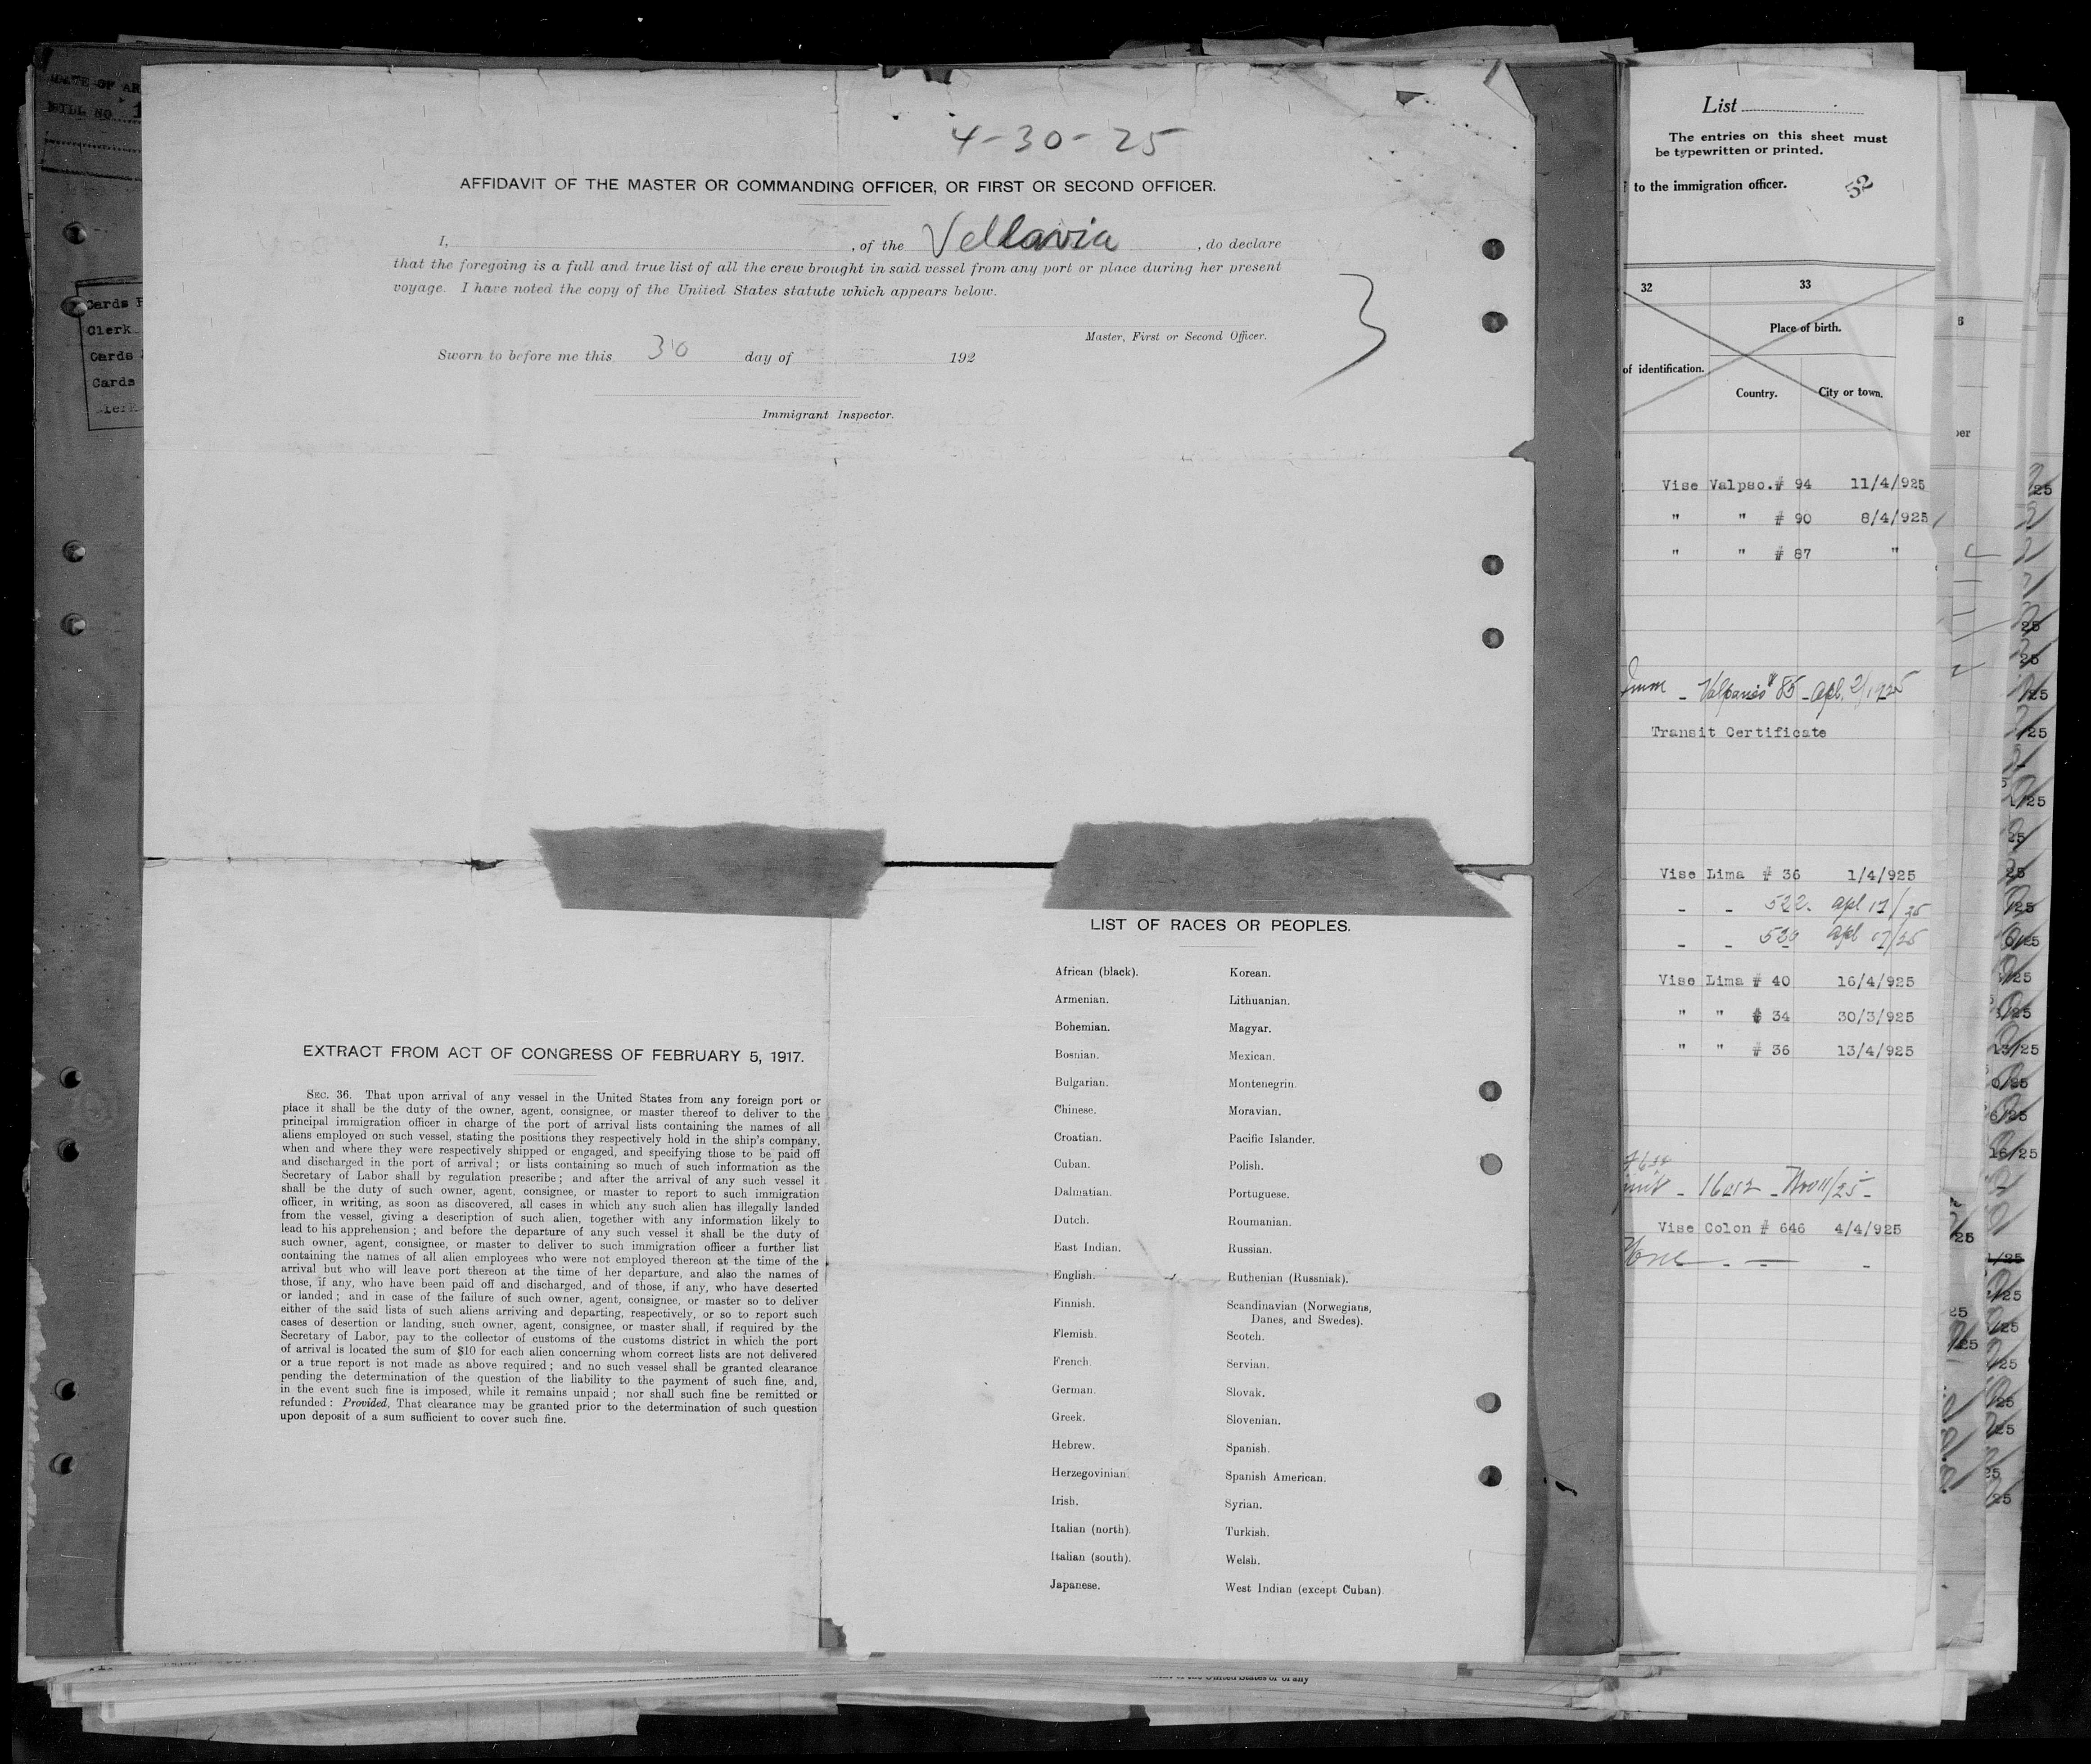 4-30-25
AFFIDAVIT OF THE MASTER OR COMMANDING OFFICER, OR FIRST OR SECOND OFFICER.
I, , of the Vellavia , do declare
that the foregoing is a full and true list of all the crew brought in said vessel from any port or place during her present
voyage. I have noted the copy of the United States statute which appears below.
3
Master, First or Second Officer.
Sworn to before me this 30 day of 192
Immigrant Inspector.
EXTRACT FROM ACT OF CONGRESS OF FEBRUARY 5, 1917.
SEC. 36. That upon arrival of any vessel in the United States from any foreign port or
place it shall be the duty of the owner, agent, consignee, or master thereof to deliver to the
principal immigration officer in charge of the port of arrival lists containing the names of all
aliens employed on such vessel, stating the positions they respectively hold in the ship's company,
when and where they were respectively shipped or engaged, and specifying those to be paid off
and discharged in the port of arrival; or lists containing so much of such information as the
Secretary of Labor shall by regulation prescribe; and after the arrival of any such vessel it
shall be the duty of such owner, agent, consignee, or master to report to such immigration
officer, in writing, as soon as discovered, all cases in which any such alien has illegally landed
from the vessel, giving a description of such alien, together with any information likely to
lead to his apprehension; and before the departure of any such vessel it shall be the duty of
such owner, agent, consignee, or master to deliver to such immigration officer a further list
containing the names of all alien employees who were not employed thereon at the time of the
arrival but who will leave port thereon at the time of her departure, and also the names of
those, if any, who have been paid off and discharged, and of those, if any, who have deserted
or landed; and in case of the failure of such owner, agent, consignee, or master so to deliver
either of the said lists of such aliens arriving and departing, respectively, or so to report such
cases of desertion or landing, such owner, agent, consignee, or master shall, if required by the
Secretary of Labor, pay to the collector of customs of the customs district in which the port
of arrival is located the sum of $10 for each alien concerning whom correct lists are not delivered
or a true report is not made as above required; and no such vessel shall be granted clearance
pending the determination of the question of the liability to the payment of such fine, and,
in the event such fine is imposed, while it remains unpaid; nor shall such fine be remitted or
refunded: Provided, That clearance may be granted prior to the determination of such question
upon deposit of a sum sufficient to cover such fine.
LIST OF RACES OR PEOPLES.
African (black).
Armenian.
Bohemian.
Bosnian.
Bulgarian.
Chinese.
Croatian.
Cuban.
Dalmatian.
Dutch.
East Indian.
English.
Finnish.
Flemish.
French.
German.
Greek.
Hebrew.
Herzegovinian.
Irish.
Italian (north).
Italian (south).
Japanese.
Korean.
Lithuanian.
Magyar.
Mexican.
Montenegrin.
Moravian.
Pacific Islander.
Polish.
Portuguese.
Roumanian.
Russian.
Ruthenian (Russniak).
Scandinavian (Norwegians,
Danes, and Swedes).
Scotch.
Servian.
Slovak.
Slovenian.
Spanish.
Spanish American.
Syrian.
Turkish.
Welsh.
West Indian (except Cuban).
Cards
Clerk
Cards
Cards
List
The entries on this sheet must
be typewritten or printed.
to the immigration officer. 52
32 33
Place of birth.
of identification.
Country. City or town.
Vise Valpso.# 94 11/4/925
" " # 90 8/4/925
" " # 87 "
Transit Certificate
Vise Lima # 36 1/4/925
- - 522. apl 17/25
- - 520 apl 17/25
Vise Lima # 40 16/4/925
" " # 34 30/3/925
" " # 36 13/4/925
Vise Colon # 646 4/4/925
None - -